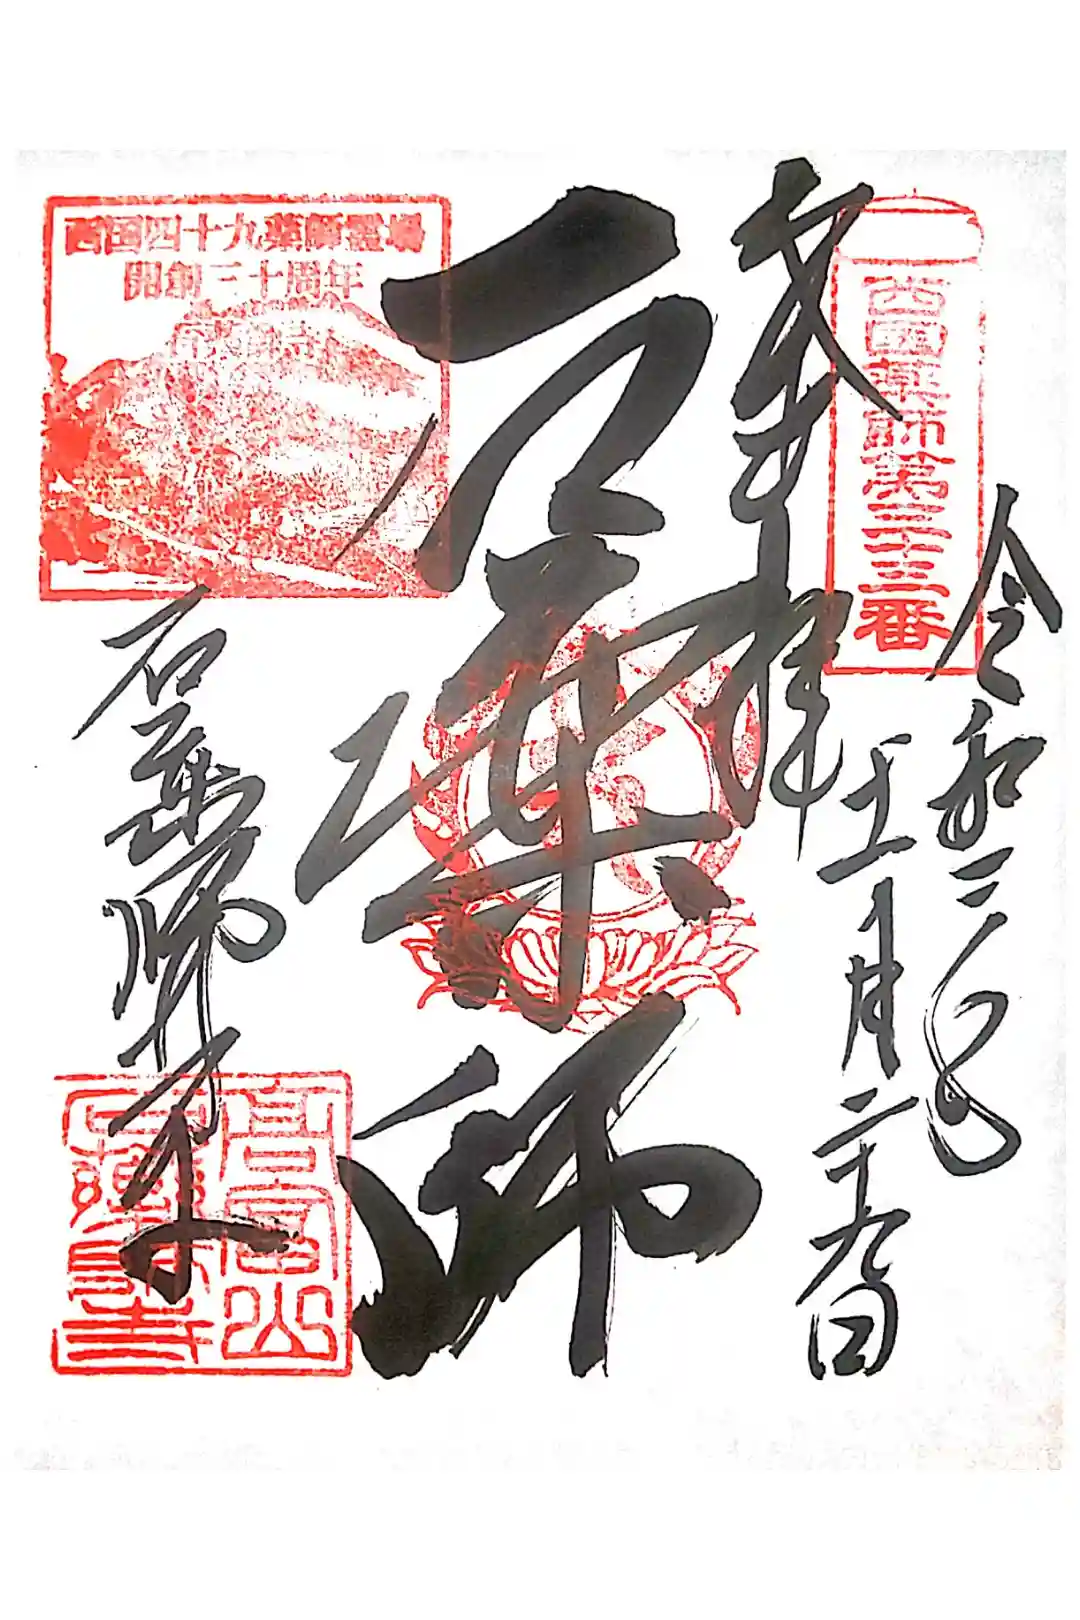 令和三年
十一月二十九日
西國薬師第三十三番
奉拝
石薬師
西国四十九薬師霊場
開創三十周年
石薬師寺
石薬師寺
高富山
石薬師寺